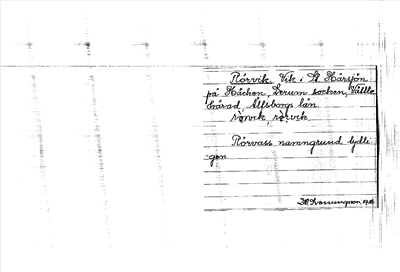 Rörvik. Vik i St Hårsjön
på Häcken, Lerum socken, Vättle
härad, Älfsborgs län
rørvik, rørvik
Rörvass namngrund tydli-
gen